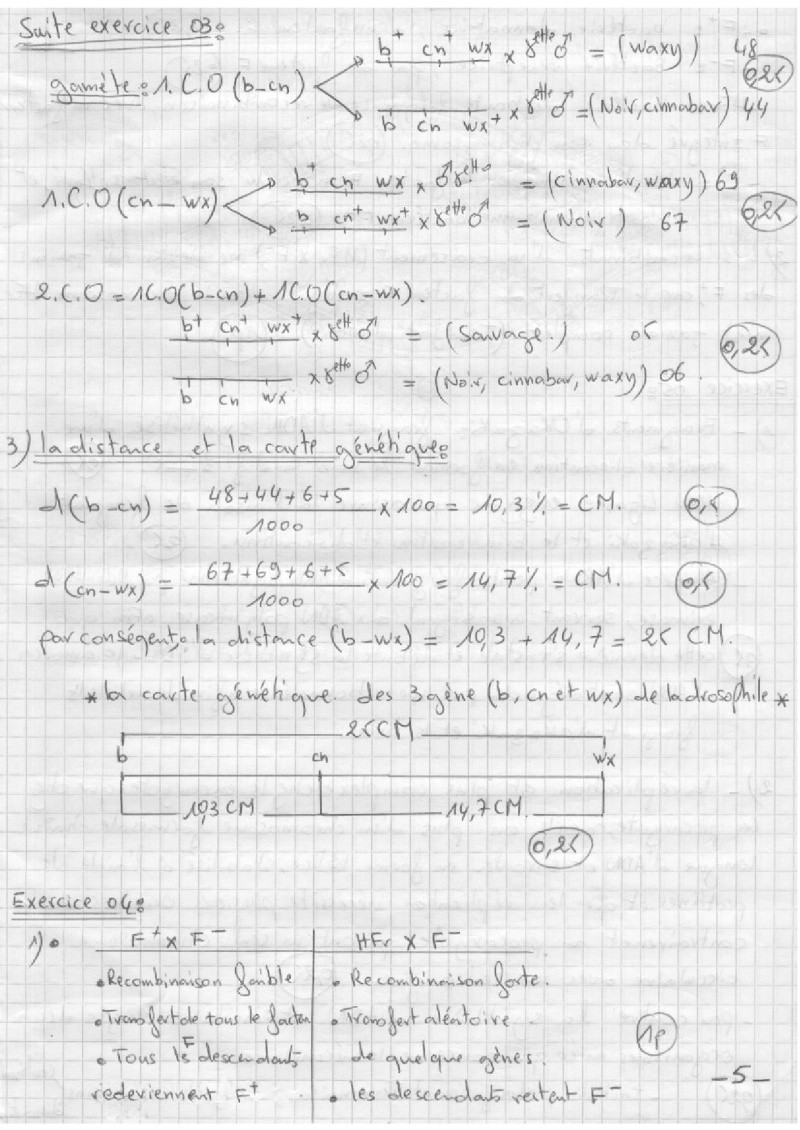 Suite exercice 03:
gamète: 1.C.O (b-cn) b+ cn+ wx x γette ♂ = (waxy) 48
0,25
b cn wx+ x γette ♂ = (Noir, cinnabar) 44
1.C.O (cn-wx) b+ cn wx x ♂ γette = (cinnabar, waxy) 69
b cn+ wx+ x γette ♂ = (Noir) 67
0,25
2.C.O = 1C.O(b-cn) + 1C.O(cn-wx).
b+ cn+ wx+ x γette ♂ = (Sauvage.) 05
0,25
b cn wx x γette ♂ = (Noir, cinnabar, waxy) 06
3) la distance et la carte génétique:
d(b-cn) = 48+44+6+5 / 1000 x 100 = 10,3 % = CM. 0,5
d(cn-wx) = 67+69+6+5 / 1000 x 100 = 14,7 % = CM. 0,5
par conségent, la distance (b-wx) = 10,3 + 14,7 = 25 CM.
* la carte génétique des 3 gène (b, cn et wx) de la drosophile *
25 CM
b cn wx
10,3 CM 14,7 CM.
0,25
Exercice 04:
1)• F+ x F- HFr X F-
• Recombinaison faible • Recombinaison forte.
• Transfert de tous le facteur F • Transfert aléatoire
de quelque gènes. 1p
• Tous les descendants
redeviennent F+ • les descendants restent F-
-5-